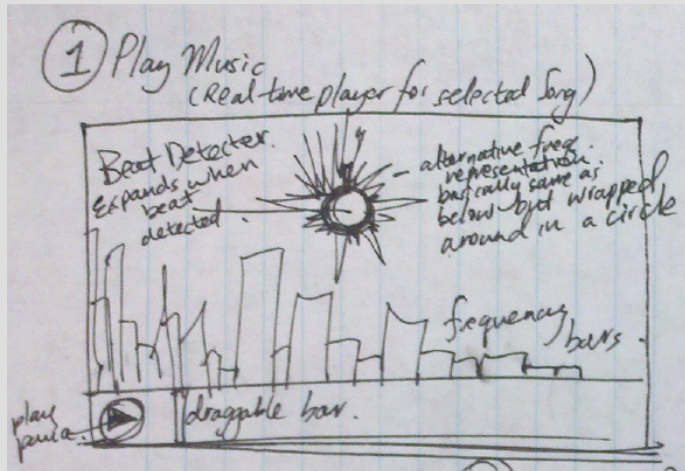 1 Play Music
(Real-time player for selected Song)
Beat Detecter.
Expands when
beat
detected.
alternative freq.
representation.
basically same as
below but wrapped
around in a circle
frequency
bars.
play
draggable bar.